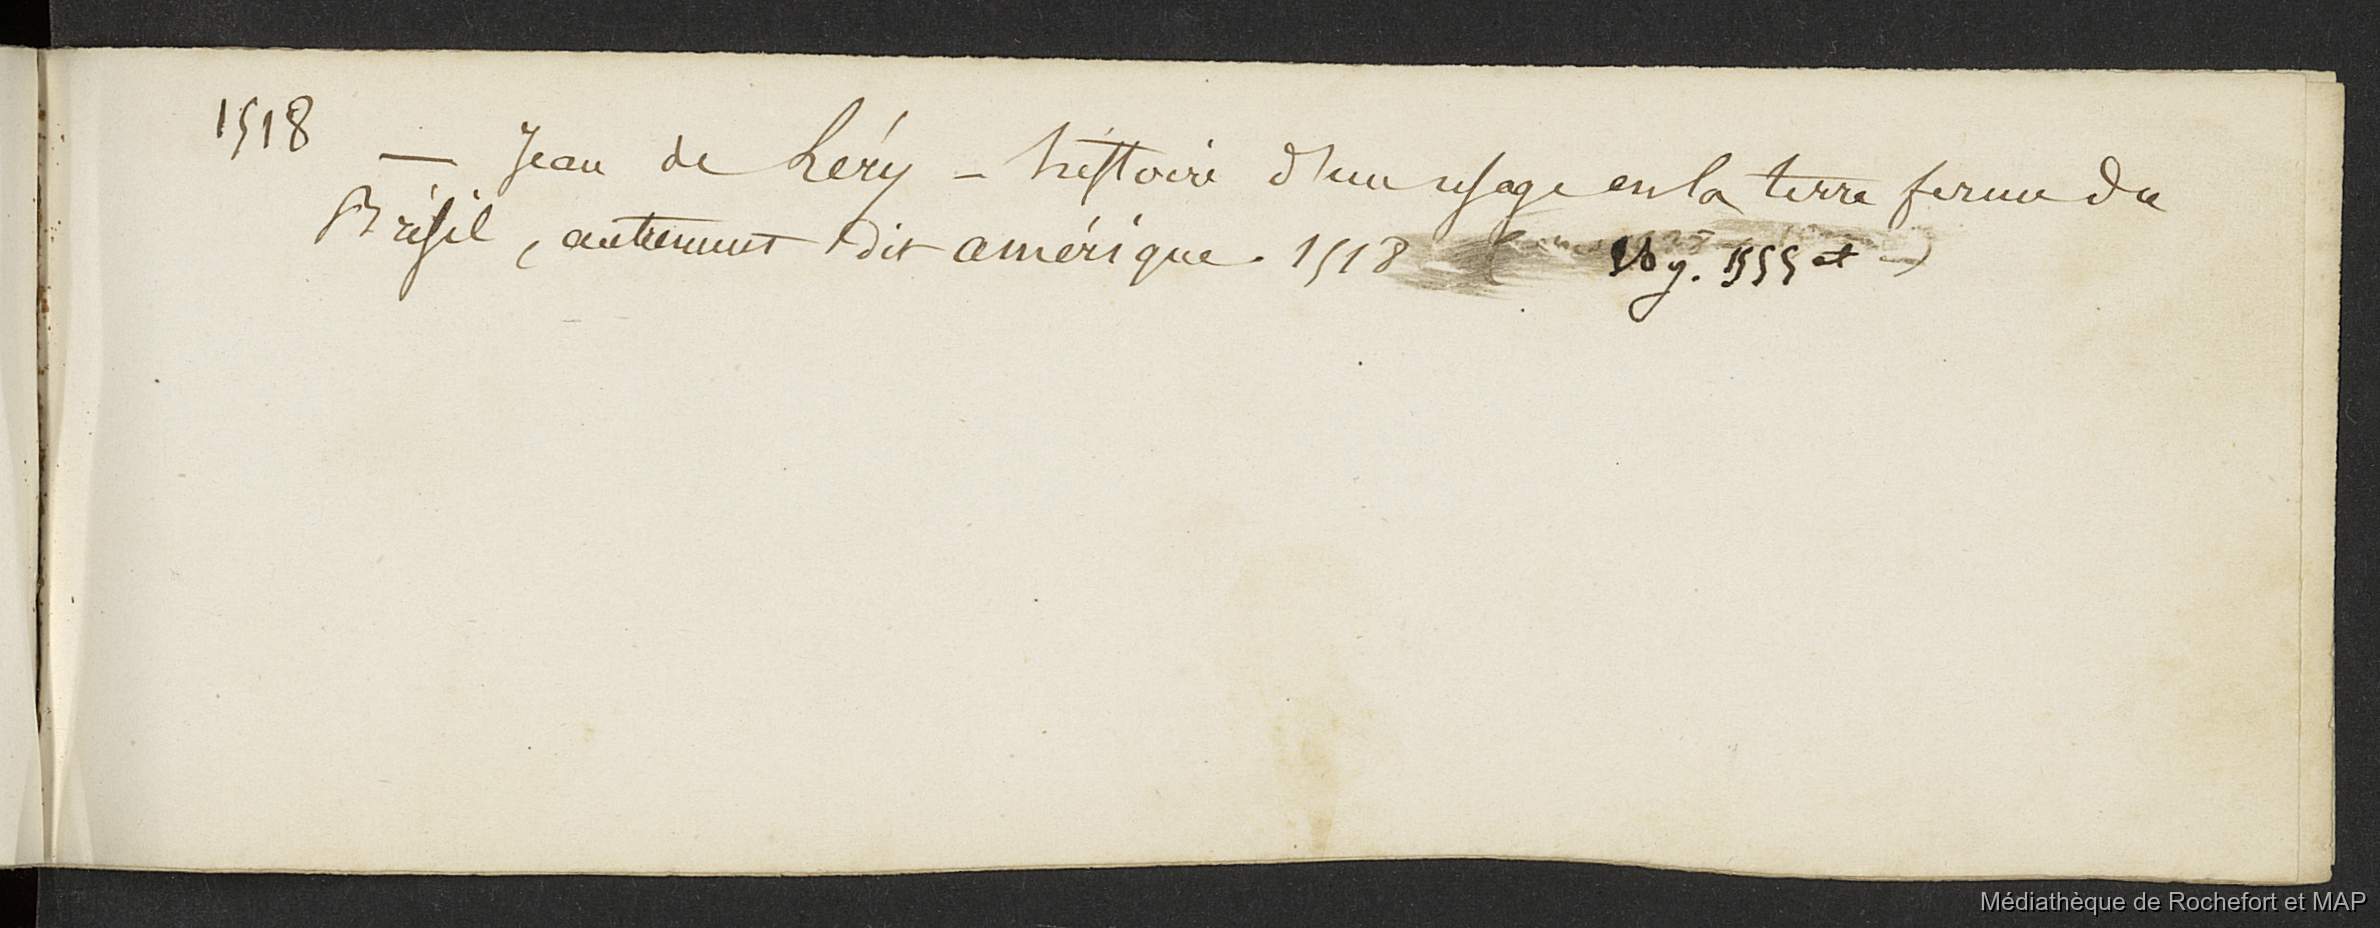 1518
— Jean de Léry – histoire d'un usage en la terre ferme du
Brésil, autrement dit amérique. 1518 Voy. 1555 et )
Médiathèque de Rochefort et MAP